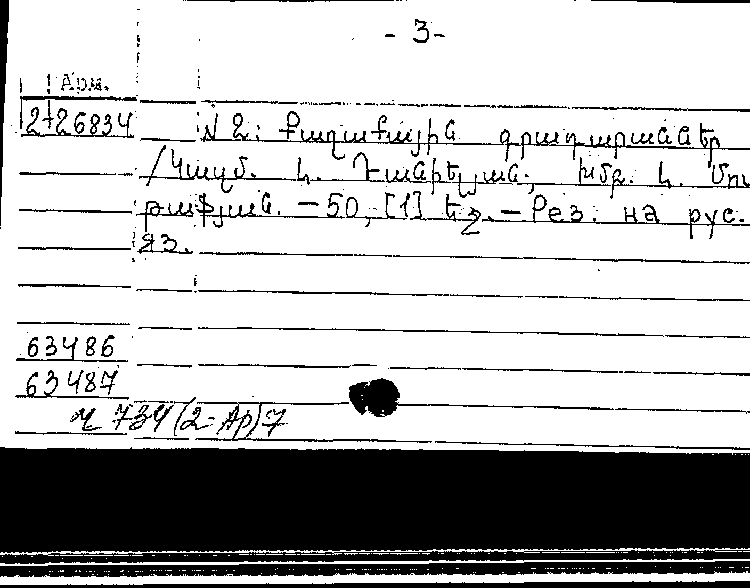 - 3-
Арм.
2+26834
№ 2: Քաղաքային գրադարաններ
/Կազմ. Ն. Դանիելյան; խմբ. Ն. Մու
րաֆյան. – 50, [1] եջ. – Рез. на рус.
яз.
63486
63487
ч 734(2-Ар)7